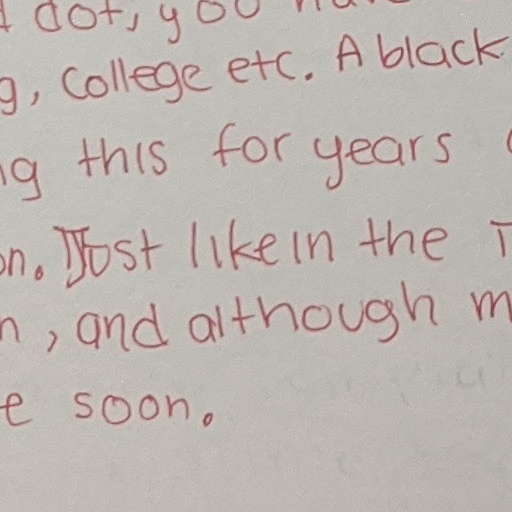 dot, you
g, college etc. A black
ng this for years
on. Just like in the
n, and although m
e soon.